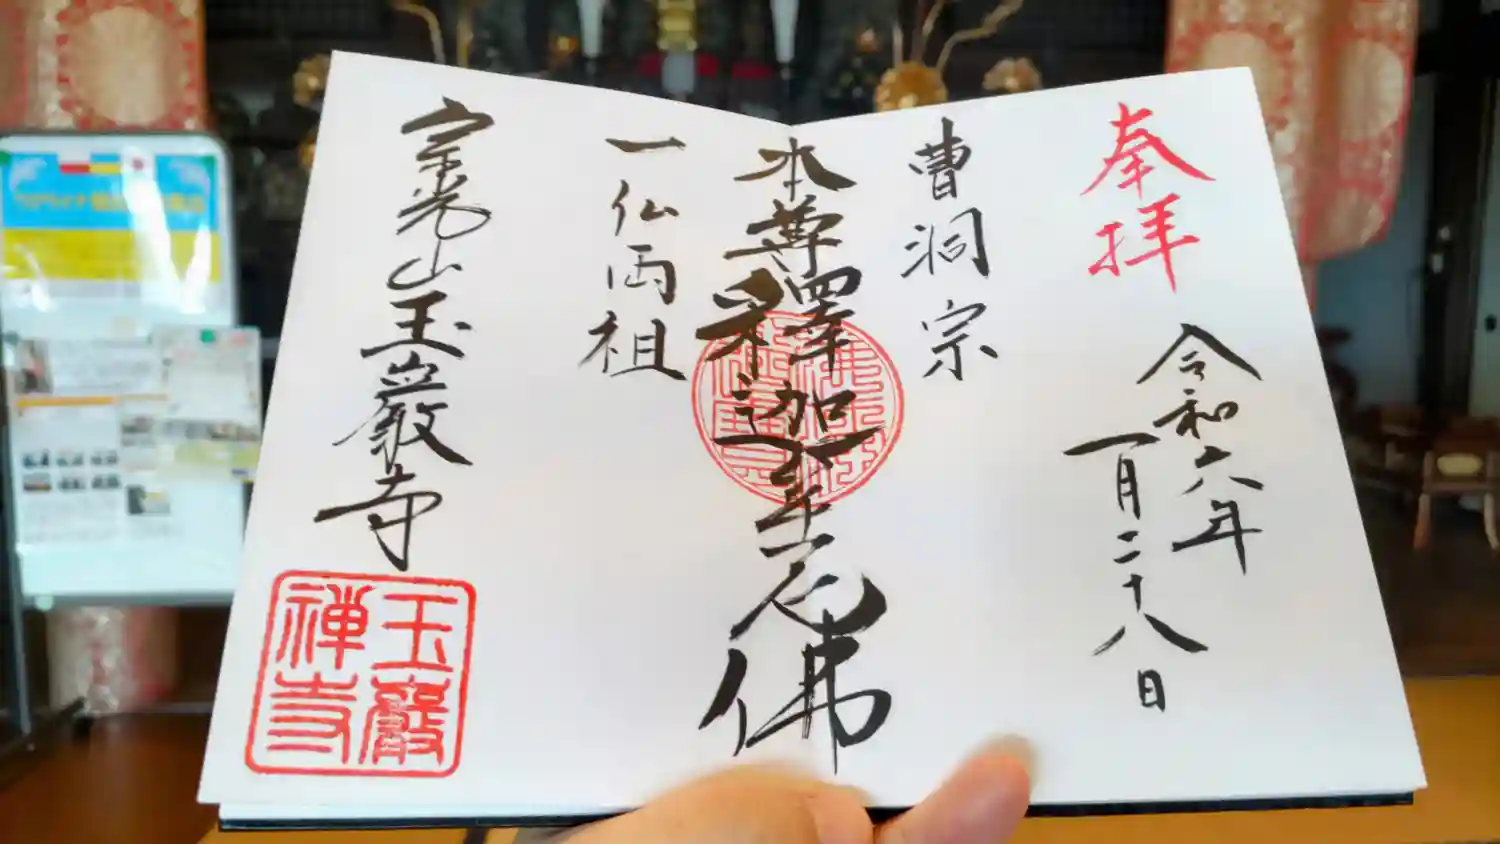 奉拝
令和六年
一月二十八日
曹洞宗
本尊釋迦牟尼佛
一仏両祖
宗光山玉巌寺
玉巖
禅寺